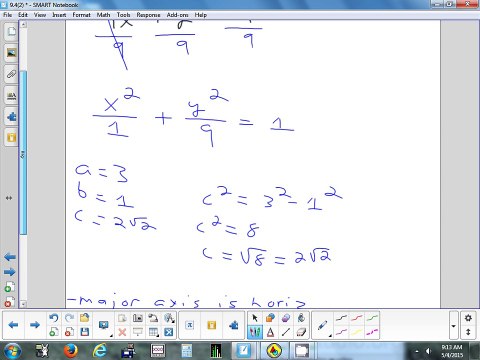 9.4(2) * - SMART Notebook
File Edit View Insert Format Tools Add-ons Help
9 9 9
x²/1 + y²/9 = 1
a = 3
b = 1
c² = 3² - 1²
c = 2√2
c² = 8
c = √8 = 2√2
-major axis is horiz
9:13 AM
5/4/2015